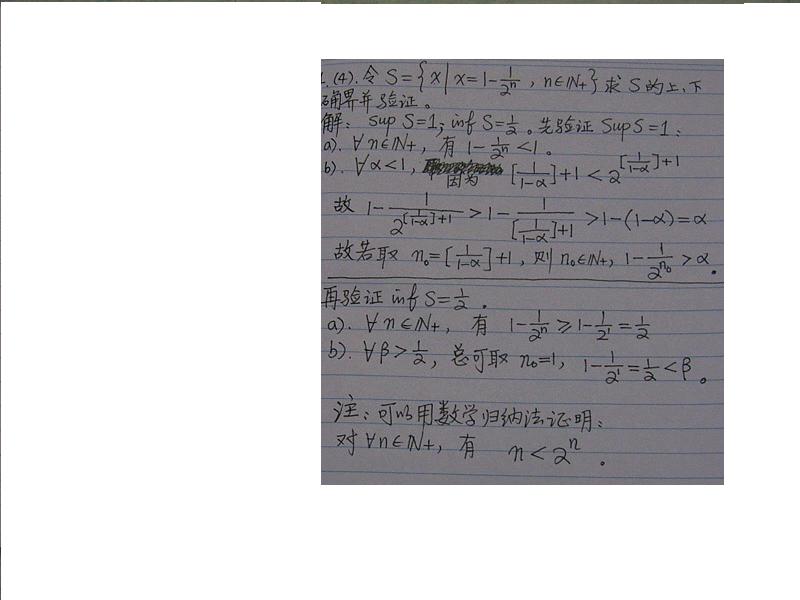 1.(4). 令 S={x|x=1-1/2^n, n∈ℕ+} 求 S 的上、下
确界并验证。
解: sup S=1; inf S=1/2。先验证 sup S=1:
a). ∀n∈ℕ+, 有 1-1/2^n<1。
b). ∀α<1, 因为 [1/(1-α)]+1<2^([1/(1-α)]+1)
故 1-1/2^([1/(1-α)]+1)>1-1/([1/(1-α)]+1)>1-(1-α)=α
故若取 n₀=[1/(1-α)]+1, 则 n₀∈ℕ+, 1-1/2^(n₀)>α。
再验证 inf S=1/2.
a). ∀n∈ℕ+, 有 1-1/2^n≥1-1/2^1=1/2
b). ∀β>1/2, 总可取 n₀=1, 1-1/2^1=1/2<β。
注: 可以用数学归纳法证明:
对∀n∈ℕ+, 有 n<2^n。